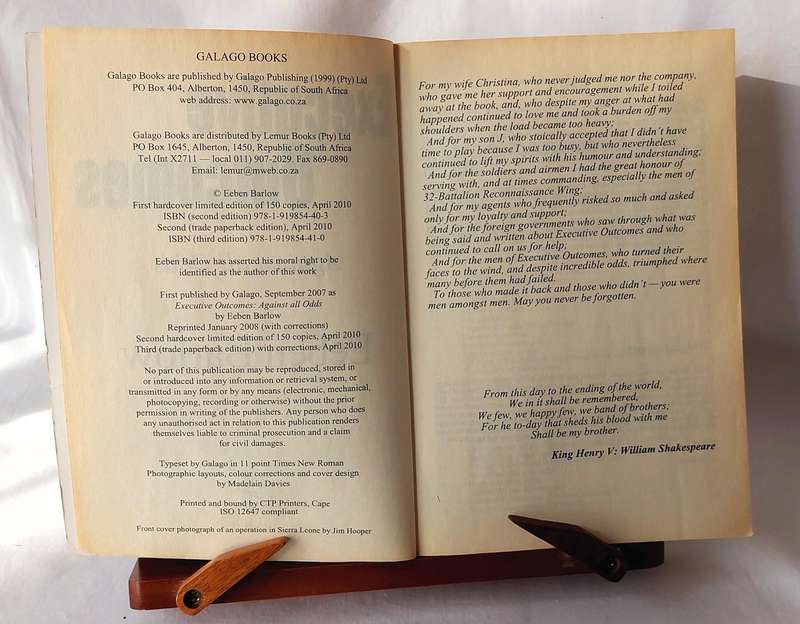 GALAGO BOOKS
Galago Books are published by Galago Publishing (1999) (Pty) Ltd
PO Box 404, Alberton, 1450, Republic of South Africa
web address: www.galago.co.za
Galago Books are distributed by Lemur Books (Pty) Ltd
PO Box 1645, Alberton, 1450, Republic of South Africa
Tel (Int X2711 — local 011) 907-2029. Fax 869-0890
Email: lemur@mweb.co.za
© Eeben Barlow
First hardcover limited edition of 150 copies, April 2010
ISBN (second edition) 978-1-919854-40-3
Second (trade paperback edition), April 2010
ISBN (third edition) 978-1-919854-41-0
Eeben Barlow has asserted his moral right to be
identified as the author of this work
First published by Galago, September 2007 as
Executive Outcomes: Against all Odds
by Eeben Barlow
Reprinted January 2008 (with corrections)
Second hardcover limited edition of 150 copies, April 2010
Third (trade paperback edition) with corrections, April 2010
No part of this publication may be reproduced, stored in
or introduced into any information or retrieval system, or
transmitted in any form or by any means (electronic, mechanical,
photocopying, recording or otherwise) without the prior
permission in writing of the publishers. Any person who does
any unauthorised act in relation to this publication renders
themselves liable to criminal prosecution and a claim
for civil damages.
Typeset by Galago in 11 point Times New Roman
Photographic layouts, colour corrections and cover design
by Madelain Davies
Printed and bound by CTP Printers, Cape
ISO 12647 compliant
Front cover photograph of an operation in Sierra Leone by Jim Hooper
For my wife Christina, who never judged me nor the company,
who gave me her support and encouragement while I toiled
away at the book, and, who despite my anger at what had
happened continued to love me and took a burden off my
shoulders when the load became too heavy;
And for my son J, who stoically accepted that I didn't have
time to play because I was too busy, but who nevertheless
continued to lift my spirits with his humour and understanding;
And for the soldiers and airmen I had the great honour of
serving with, and at times commanding, especially the men of
32-Battalion Reconnaissance Wing;
And for my agents who frequently risked so much and asked
only for my loyalty and support;
And for the foreign governments who saw through what was
being said and written about Executive Outcomes and who
continued to call on us for help;
And for the men of Executive Outcomes, who turned their
faces to the wind, and despite incredible odds, triumphed where
many before them had failed.
To those who made it back and those who didn't — you were
men amongst men. May you never be forgotten.
From this day to the ending of the world,
We in it shall be remembered,
We few, we happy few, we band of brothers;
For he to-day that sheds his blood with me
Shall be my brother.
King Henry V: William Shakespeare